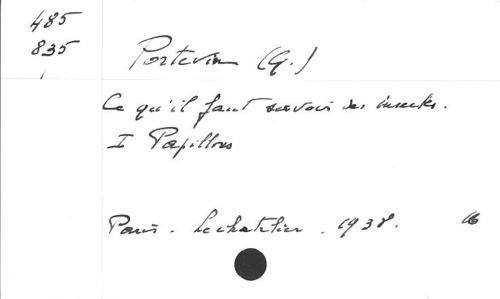 485
835
Portevin (G.)
Ce qu'il faut savoir des insectes.
I Papillons
Paris. Lechevalier. 1938.